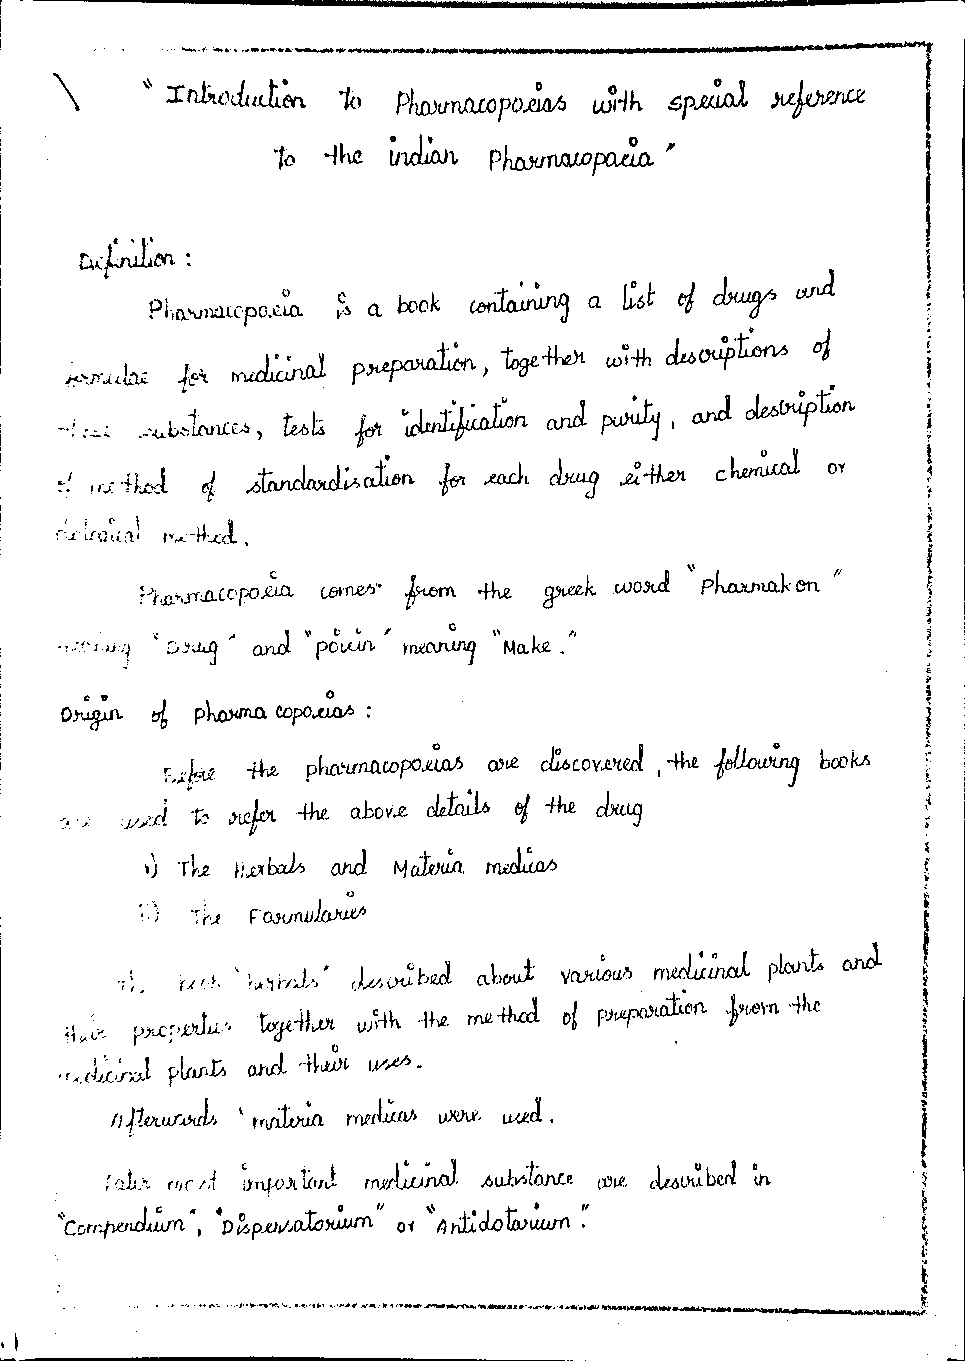 " Introduction to Pharmacopoeias with special reference
to the indian Pharmacopoeia "
Definition :
Pharmacopoeia is a book containing a list of drugs and
formulae for medicinal preparation, together with descriptions of
these substances, tests for identification and purity, and description
of method of standardisation for each drug either chemical or
biological method.
Pharmacopoeia comes from the greek word " Pharmakon "
meaning " Drug " and " poiein " meaning " Make . "
Origin of pharma copoeias :
Before the pharmacopoeias are discovered, the following books
are used to refer the above details of the drug
i) The Herbals and Materia medicas
ii) The Formularies
The book " herbals " described about various medicinal plants and
their properties together with the method of preparation from the
medicinal plants and their uses.
Afterwards ' materia medicas were used.
Later most important medicinal substance are described in
" Compendium ", " Dispensatorium " or " Antidotarium ".